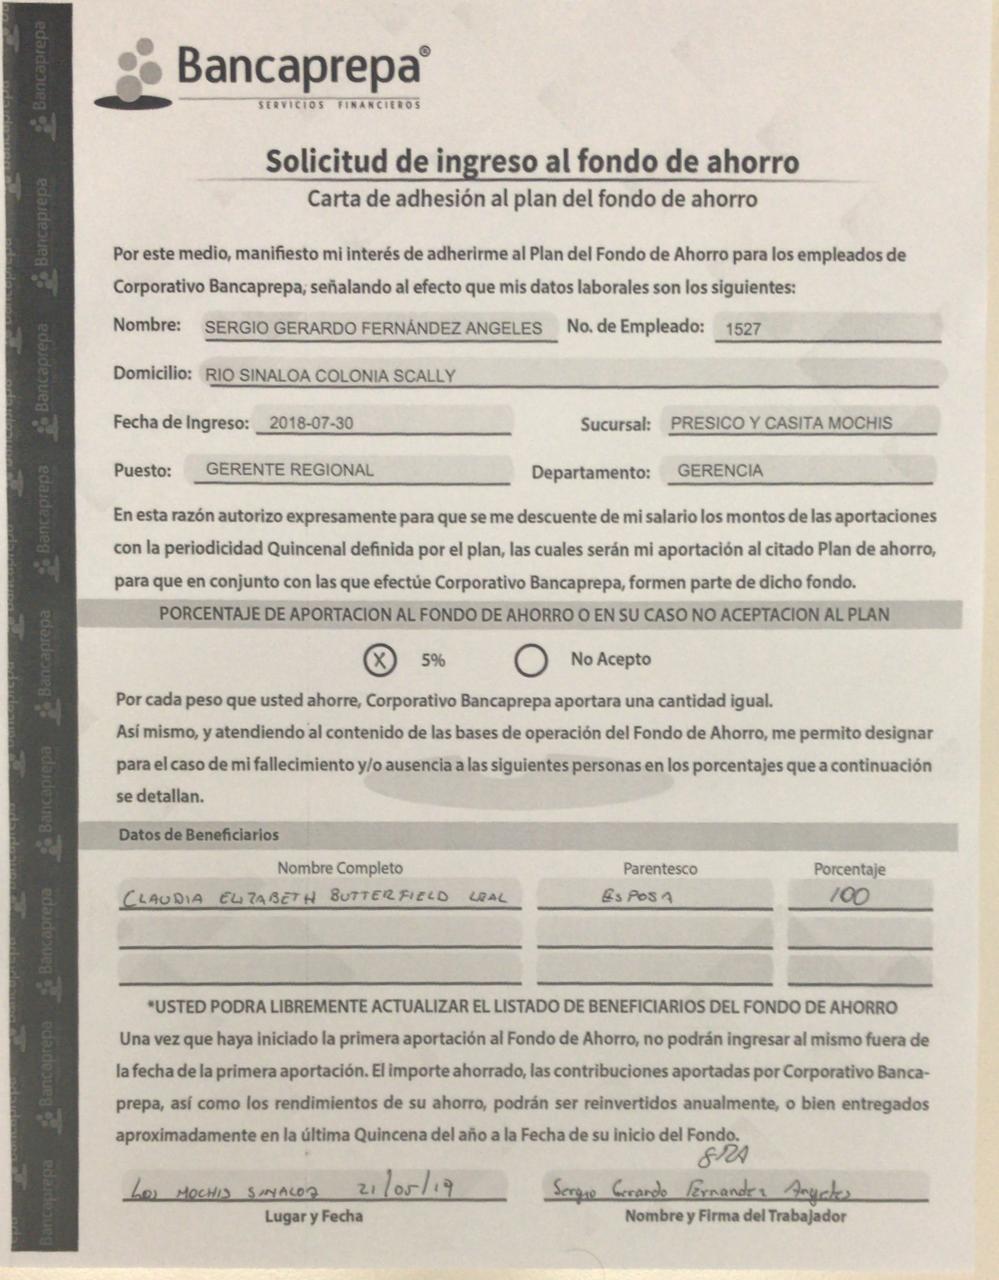 Bancaprepa®
SERVICIOS FINANCIEROS
Solicitud de ingreso al fondo de ahorro
Carta de adhesión al plan del fondo de ahorro
Por este medio, manifiesto mi interés de adherirme al Plan del Fondo de Ahorro para los empleados de
Corporativo Bancaprepa, señalando al efecto que mis datos laborales son los siguientes:
Nombre: SERGIO GERARDO FERNÁNDEZ ANGELES No. de Empleado: 1527
Domicilio: RIO SINALOA COLONIA SCALLY
Fecha de Ingreso: 2018-07-30 Sucursal: PRESICO Y CASITA MOCHIS
Puesto: GERENTE REGIONAL Departamento: GERENCIA
En esta razón autorizo expresamente para que se me descuente de mi salario los montos de las aportaciones
con la periodicidad Quincenal definida por el plan, las cuales serán mi aportación al citado Plan de ahorro,
para que en conjunto con las que efectúe Corporativo Bancaprepa, formen parte de dicho fondo.
PORCENTAJE DE APORTACION AL FONDO DE AHORRO O EN SU CASO NO ACEPTACION AL PLAN
X 5% No Acepto
Por cada peso que usted ahorre, Corporativo Bancaprepa aportara una cantidad igual.
Así mismo, y atendiendo al contenido de las bases de operación del Fondo de Ahorro, me permito designar
para el caso de mi fallecimiento y/o ausencia a las siguientes personas en los porcentajes que a continuación
se detallan.
Datos de Beneficiarios
Nombre Completo Parentesco Porcentaje
CLAUDIA ELIZABETH BUTTERFIELD LEAL ESPOSA 100
*USTED PODRA LIBREMENTE ACTUALIZAR EL LISTADO DE BENEFICIARIOS DEL FONDO DE AHORRO
Una vez que haya iniciado la primera aportación al Fondo de Ahorro, no podrán ingresar al mismo fuera de
la fecha de la primera aportación. El importe ahorrado, las contribuciones aportadas por Corporativo Banca-
prepa, así como los rendimientos de su ahorro, podrán ser reinvertidos anualmente, o bien entregados
aproximadamente en la última Quincena del año a la Fecha de su inicio del Fondo.
Los MOCHIS SINALOA 21/05/19 Sergio Gerardo Fernandez Angeles
Lugar y Fecha Nombre y Firma del Trabajador